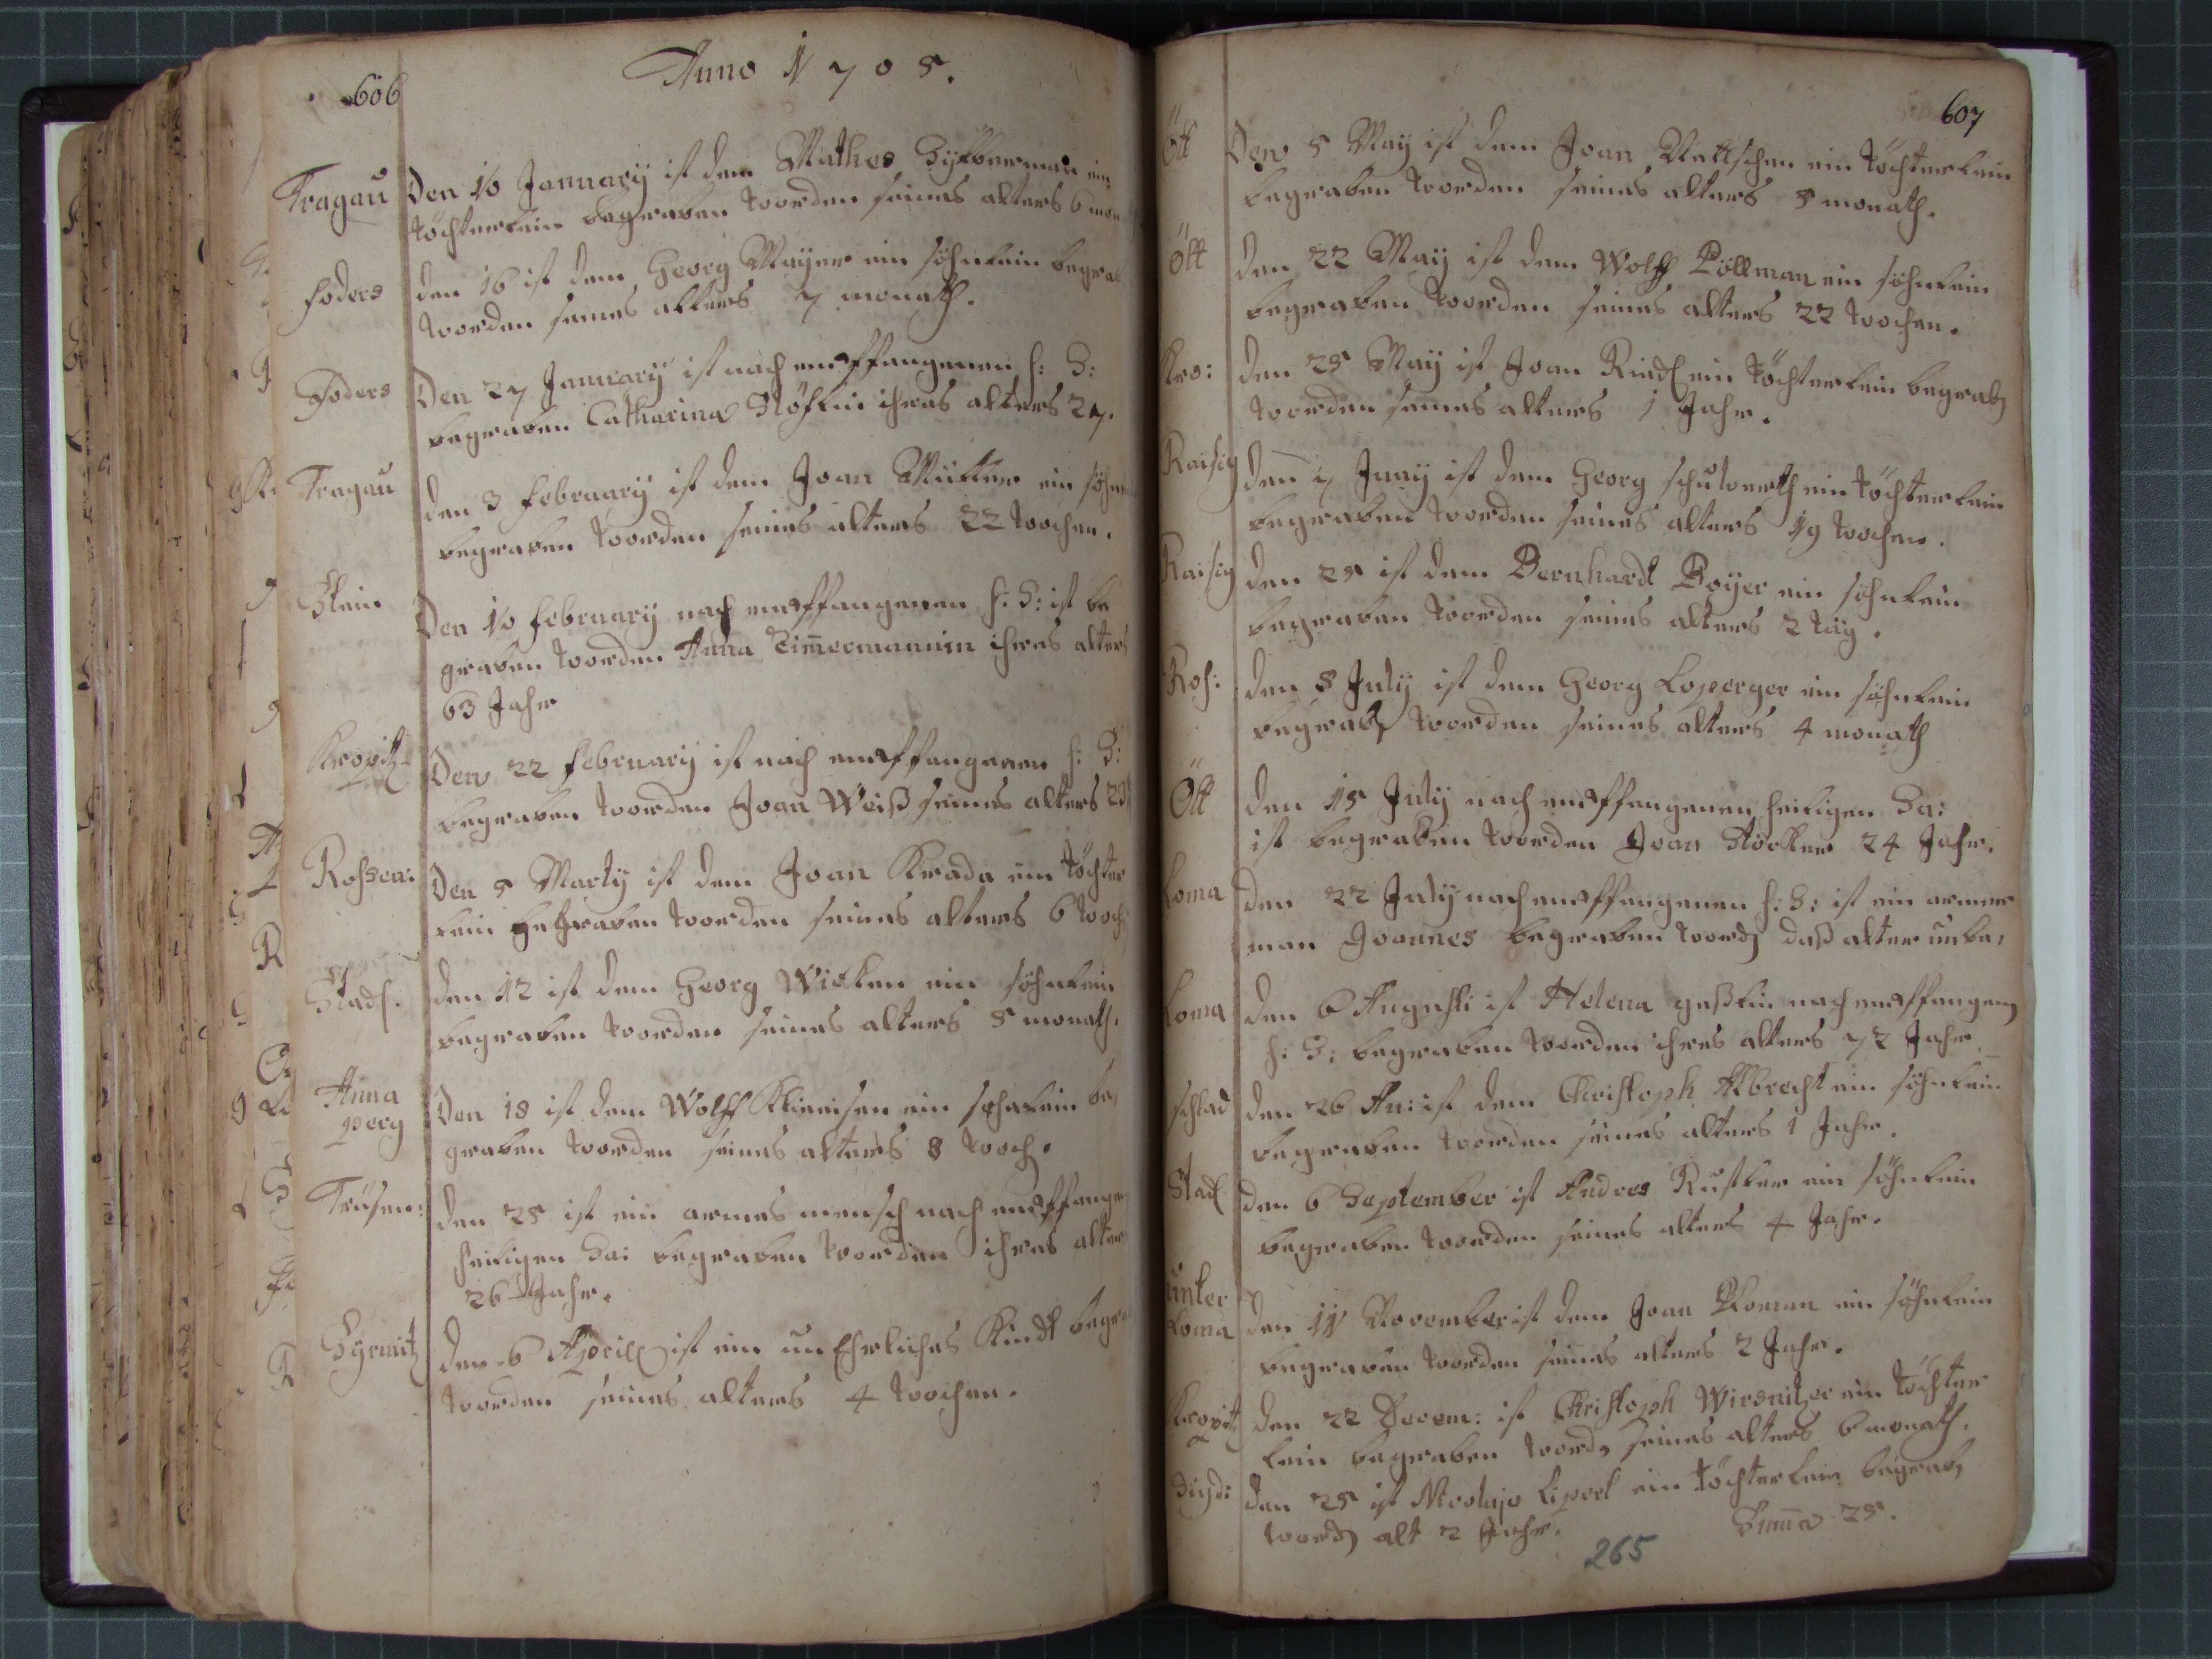 606
Anno 1705.
Tragau Den 10 January ist dem Mathes ein
töchterlein begraben worden seines alters 6 mon
foders den 16 ist dem Georg Mayer ein söhnlein begrab
worden seines alters 7 monath.
Foders Den 27 January ist nach empffangenen h: S:
begraben Catharina ihres alters 27.
Tragau den 3 february ist dem Joan Müller ein söhn
begraben worden seines alters 22 wochen.
Stein Den 10 february nach empffangenen h: S: ist be
graben worden Anna Zimermannin ihres alters
63 Jahr
Kropitz Den 22 february ist nach empffangenen h: S:
begraben worden Joan Weiß seines alters 23
Rossen: Den 5 Marty ist dem Joan Krada ein töchter
lein begraben worden seines alters 6 woch
Stadl. den 12 ist dem Georg ein söhnlein
begraben worden seines alters 5 monath.
Anna
perg Den 18 ist dem Wolff ein söhnlein be,
graben worden seines alters 8 woch.
den 25 ist ein armes mensch nach empffange
heiligen Sa: begraben worden ihres alter
26 Jahr.
den 6 Aprill ist ein un Ehrliches Kindl begra
worden seines alters 4 wochen.
607
Ött Den 5 May ist dem Joan ein töchterlein
begraben worden seines alters 5 monath.
Ött den 22 May ist dem Wolff Pöllman ein söhnlein
begraben worden seines alters 22 wochen.
Kro: den 25 May ist Joan Riedl ein töchterlein begrab
worden seines alters 1 Jahr.
Raisig den Juny ist dem Georg schulwerth ein töchterlein
begraben worden seines alters 19 wochen.
Raisig den 25 ist dem Bernhardt Boyer ein söhnlein
begraben worden seines alters 2 täg.
Ros: den 8 July ist dem Georg Loperger ein söhnlein
begrab worden seines alters 4 monath
Ött den 15 July nach empffangenen heiligen Sa:
ist begraben worden Joan 24 Jahr.
Loma den 22 July nach empffangenen h: S: ist ein armer
man Joannes begraben word daß alter unbe,
Loma den 6 Augusti ist Helena nach empffangen
h: S: begraben worden ihres alters 72 Jahr
schlad den 26 Au: ist dem Christoph Albrecht ein söhnlein
begraben worden seines alters 1 Jahr.
Stadl den 6 September ist Andres ein söhnlein
begraben worden seines alters 4 Jahr.
unter
Loma den 11 November ist dem Joan ein söhnlein
begraben worden seines alters 2 Jahr.
Kropitz den 22 Decem: ist Christoph Wirsnitzer ein töchter
lein begraben word seines alters 6 monath.
den 25 ist Nicolajo Liperl ein töchterlein begrab
word alt 2 Jahr.
Suma 25.
265